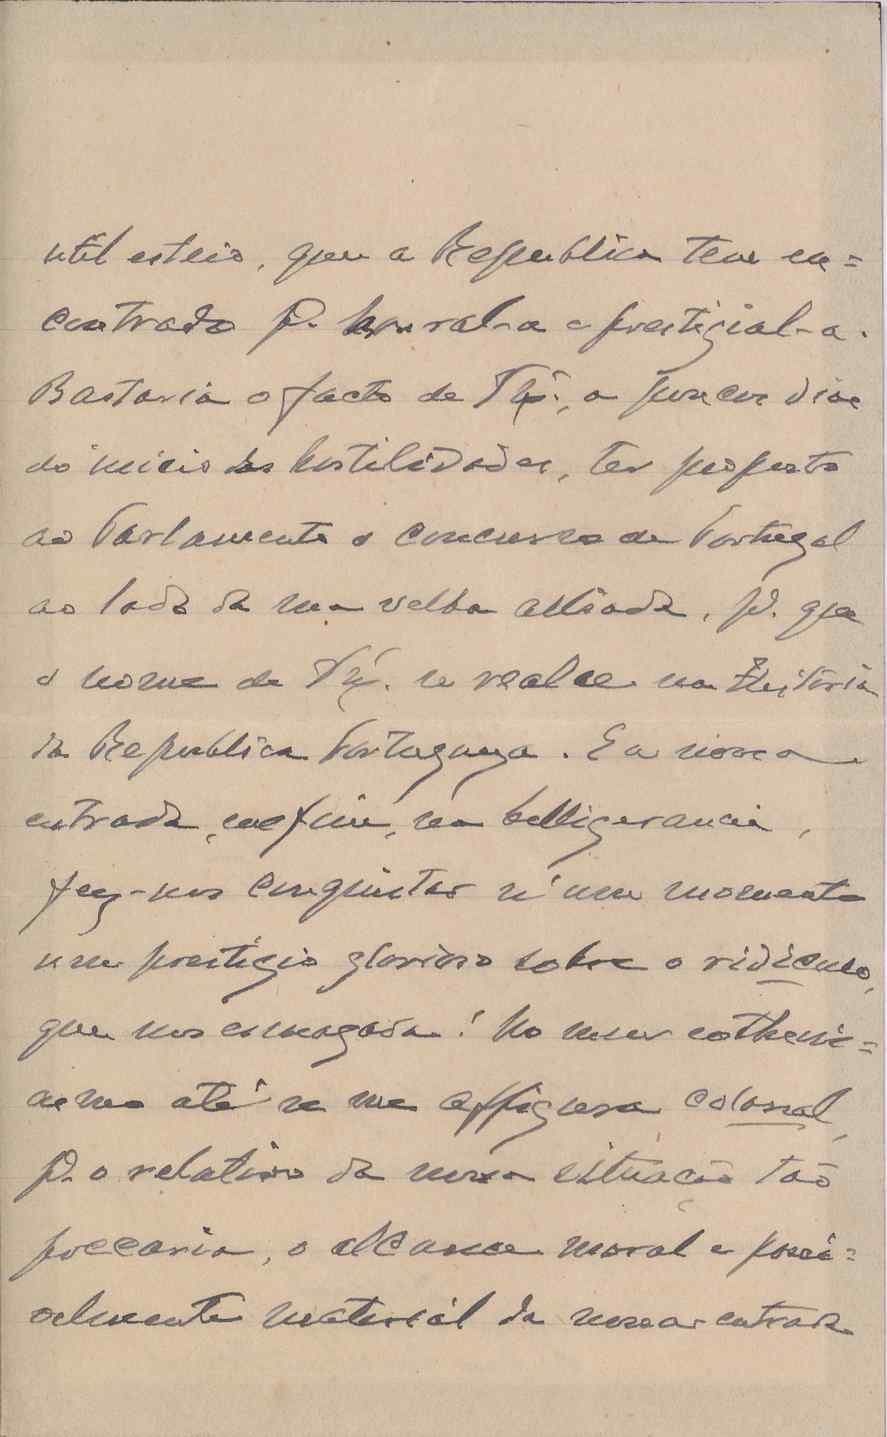 util esteio, que a Republica tem en=
contrado p. honral-a e prestigial-a.
Bastaria o facto de V. Ex.ª, a poucos dias
do inicio das hostilidades, ter proposto
ao Parlamento o concurso de Portugal
ao lado da sua velha alliada, p. que
o nome de V. Ex.ª se realce na História
da Republica Portugueza. E a nossa
entrada, emfim, na belligerancia,
fez-nos conquistar n'um momento
um prestigio glorioso sobre o ridiculo,
que nos esmagava! No meu enthusi=
asmo até se me affigura colossal,
p. o relativo da nossa situação tão
precaria, o alcance moral e possi=
velmente material da nossa entrada